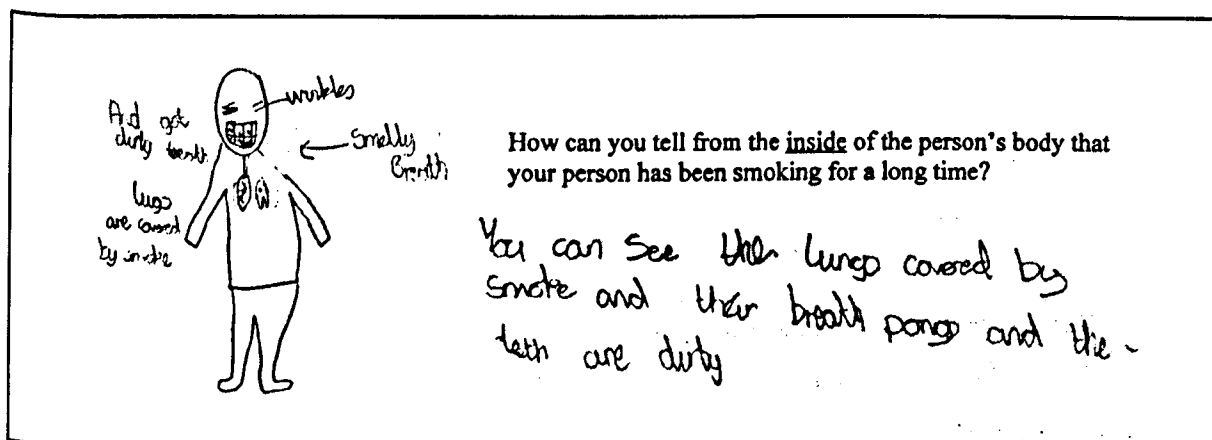 And got
dirty teeth
lugs
are covered
by smoke
wrinkles
Smelly
Breath
How can you tell from the inside of the person's body that
your person has been smoking for a long time?
You can see the lungs covered by
smoke and their breath pongs and the
teth are dirty